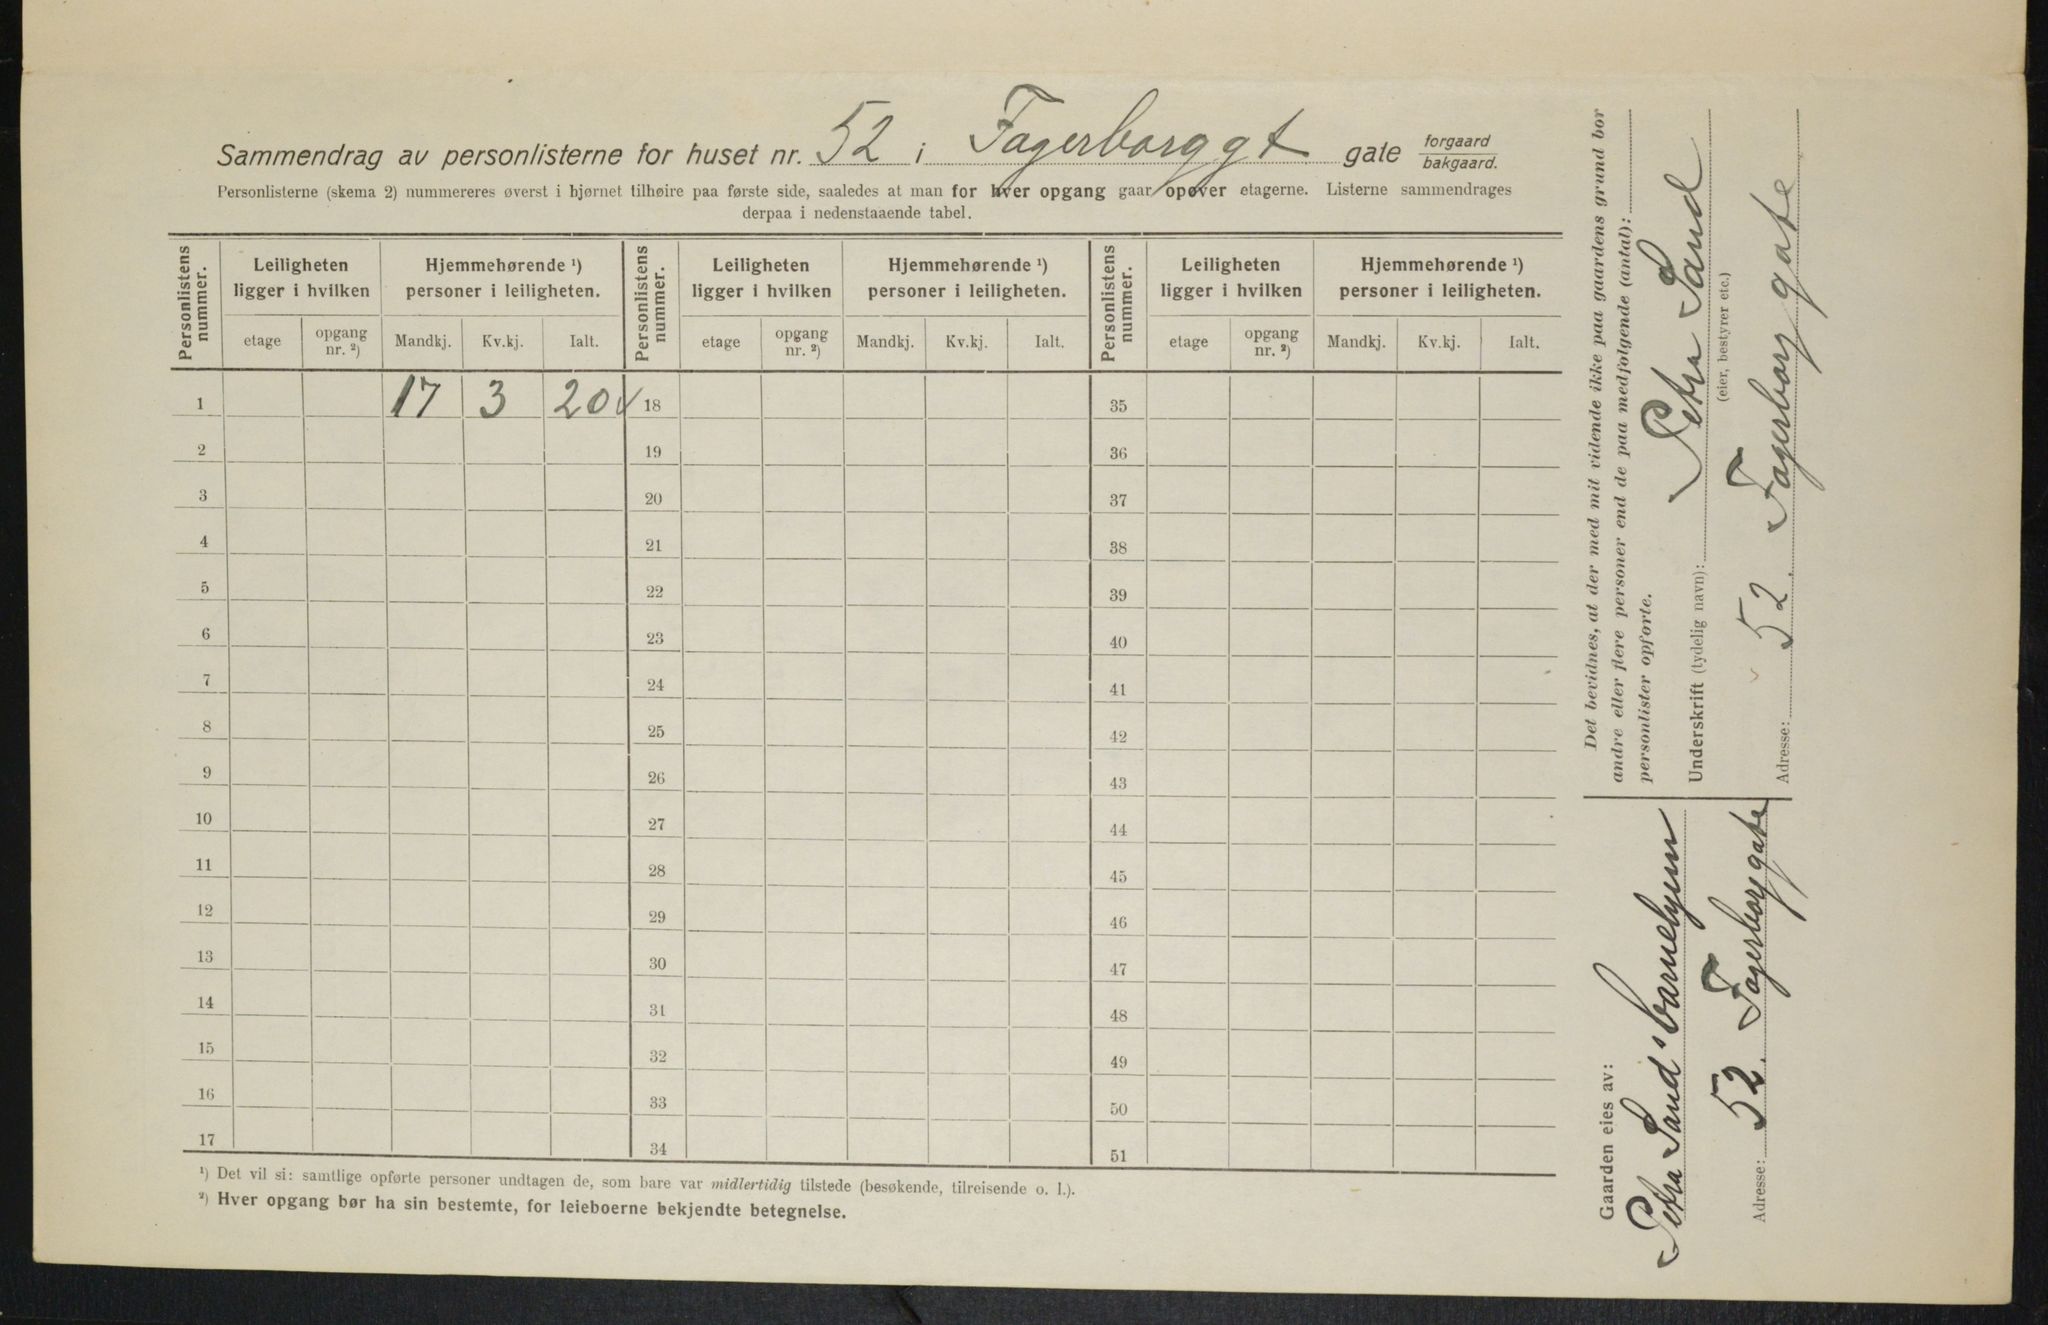 Sammendrag av personlisterne for huset nr. 52 i Fagerborggt gate forgaard bakgaard.
Personlisterne (skema 2) nummereres øverst i hjørnet tilhøire paa første side, saaledes at man for hver opgang gaar opover etagerne. Listerne sammendrages
derpaa i nedenstaaende tabel.
Personlistens nummer. Leiligheten ligger i hvilken Hjemmehørende ¹) personer i leiligheten. Personlistens nummer. Leiligheten ligger i hvilken Hjemmehørende ¹) personer i leiligheten. Personlistens nummer. Leiligheten ligger i hvilken Hjemmehørende ¹) personer i leiligheten.
etage opgang nr. ²) Mandkj. Kv.kj. Ialt. etage opgang nr. ²) Mandkj. Kv.kj. Ialt. etage opgang nr. ²) Mandkj. Kv.kj. Ialt.
1 17 3 20 √ 18 35
2 19 36
3 20 37
4 21 38
5 22 39
6 23 40
7 24 41
8 25 42
9 26 43
10 27 44
11 28 45
12 29 46
13 30 47
14 31 48
15 32 49
16 33 50
17 34 51
¹) Det vil si: samtlige opførte personer undtagen de, som bare var midlertidig tilstede (besøkende, tilreisende o. l.).
²) Hver opgang bør ha sin bestemte, for leieboerne bekjendte betegnelse.
Det bevidnes, at der med mit vidende ikke paa gaardens grund bor
andre eller flere personer end de paa medfølgende (antal):
personlister opførte.
Underskrift (tydelig navn): Petra Sand
(eier, bestyrer etc.)
Adresse: 52. Fagerborggate
Gaarden eies av:
Petra Sands barnehjem
Adresse: 52. Fagerborggate